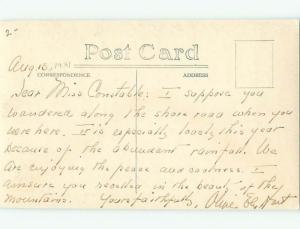 2-
Post Card
Aug 13, 1931
CORRESPONDENCE
ADDRESS
Dear Miss Constable: I suppose you
wandered along the shore road when you
were here. It is especially lovely this year
because of the abundant rainfall. We
are enjoying the peace and coolness. I
assure you revelled in the beauty of the
mountains. Yours faithfully, Olive